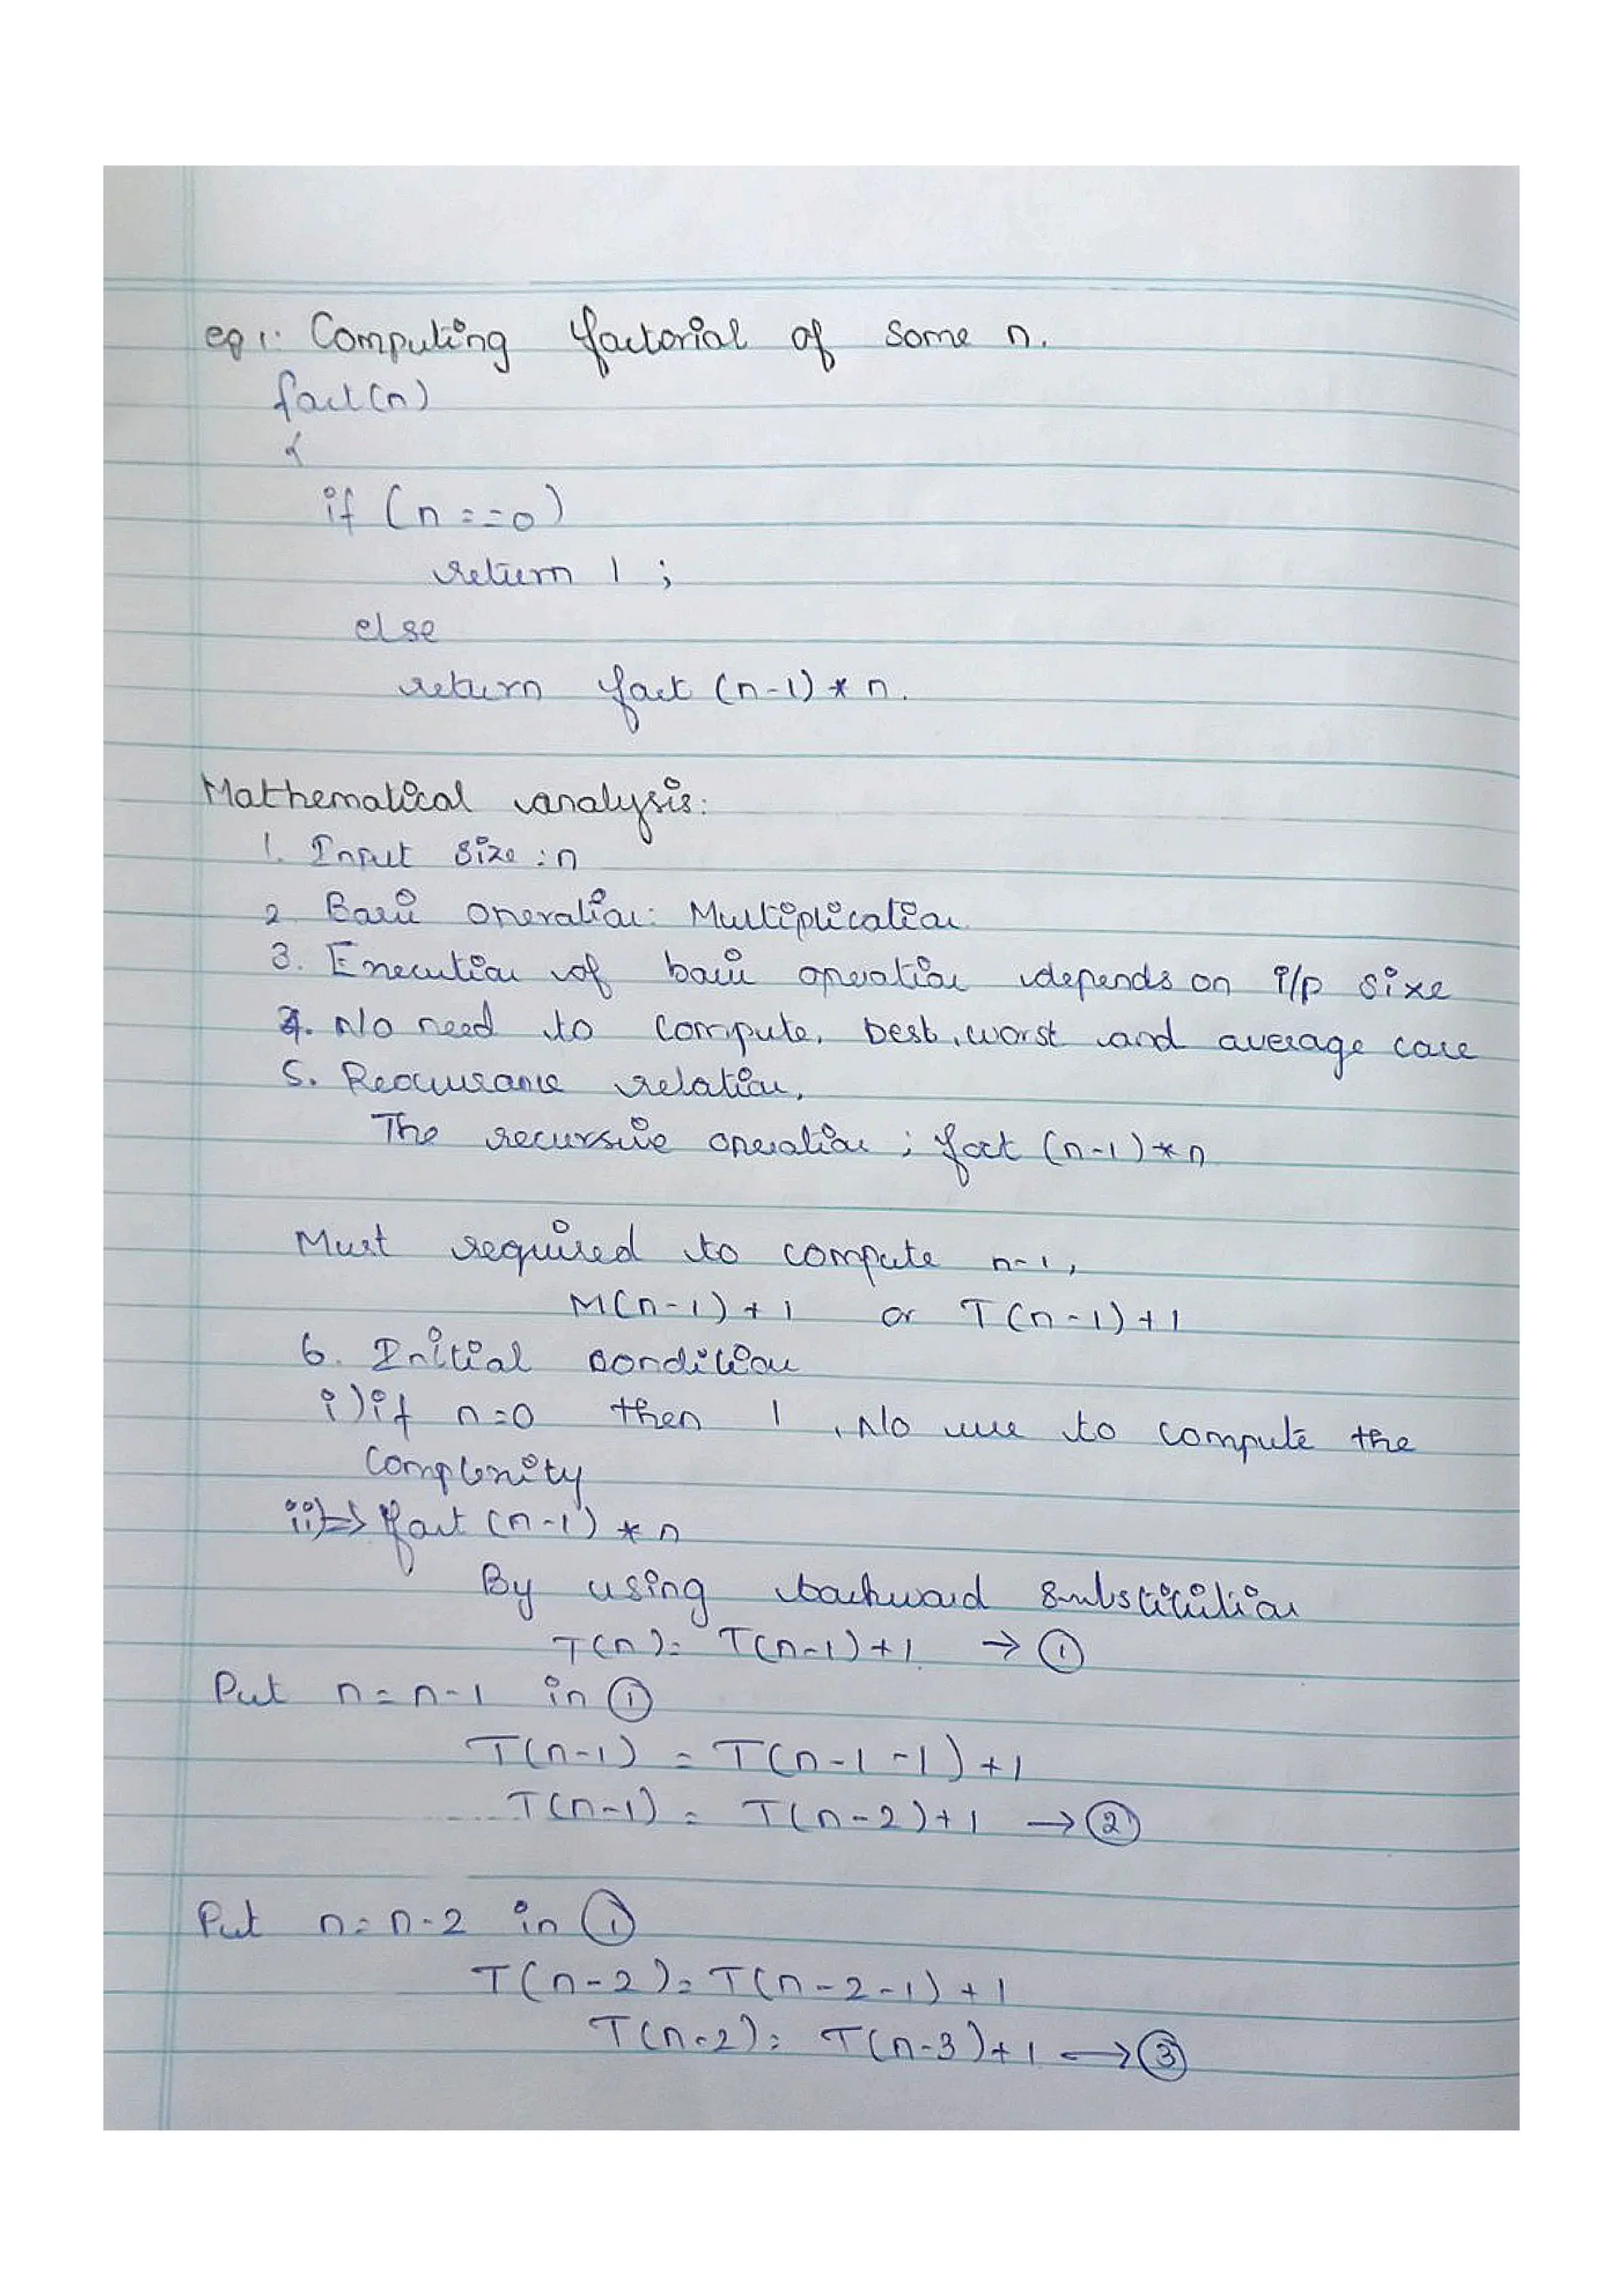 eg 1: Computing factorial of some n.
fact(n)
{
if (n==0)
return 1 ;
else
return fact (n-1) * n.
Mathematical analysis:
1. Input size : n
2. Basic operation: Multiplication.
3. Execution of basic operation depends on i/p size
4. No need to compute, best, worst and average case
5. Recurrance relation,
The recursive operation ; fact (n-1) * n
Must required to compute n-1,
M(n-1)+1 or T(n-1)+1
6. Initial condition
i) if n=0 then 1 , No use to compute the
complexity
ii) => fact (n-1) * n
By using backward substitution
T(n) = T(n-1)+1 → ①
Put n = n-1 in ①
T(n-1) = T(n-1-1)+1
T(n-1) = T(n-2)+1 → ②
Put n = n-2 in ①
T(n-2) = T(n-2-1)+1
T(n-2) = T(n-3)+1 → ③